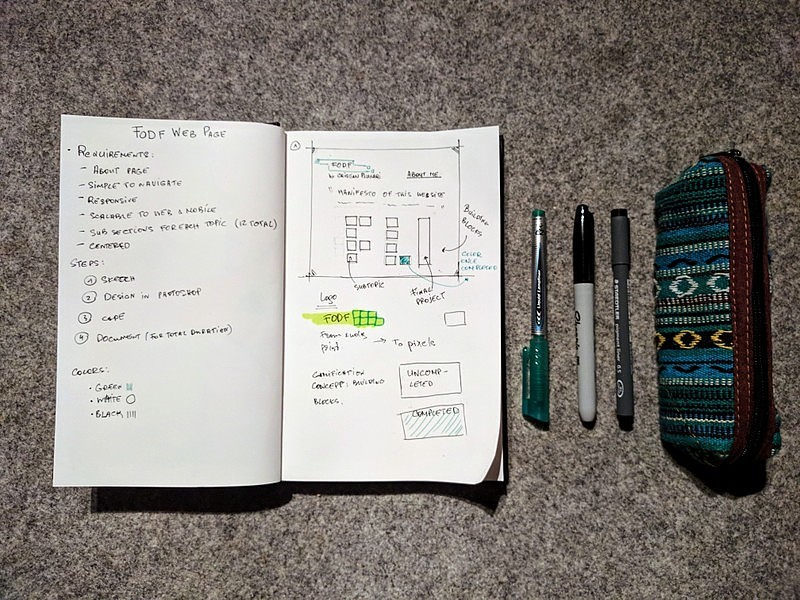 FODF WEB PAGE
• REQUIREMENTS:
– ABOUT PAGE
– SIMPLE TO NAVIGATE
– RESPONSIVE
– SCALABLE TO WEB & MOBILE
– SUB SECTIONS FOR EACH TOPIC (12 TOTAL)
– CENTERED
STEPS:
1 SKETCH
2 DESIGN IN PHOTOSHOP
3 CODE
4 DOCUMENT (FOR TOTAL DURATION)
COLORS:
• GREEN
• WHITE
• BLACK
1
FODF
ABOUT ME
" MANIFESTO OF THIS WEBSITE
"
BUILDING
BLOCKS
COLOR
ONCE
COMPLETED
SUBTOPIC
FINAL
PROJECT
LOGO
FODF
FROM
PRINT → TO PIXELS
GAMIFICATION
CONCEPT: BUILDING
BLOCKS.
UNCOMP-
LETED
COMPLETED
STAEDTLER